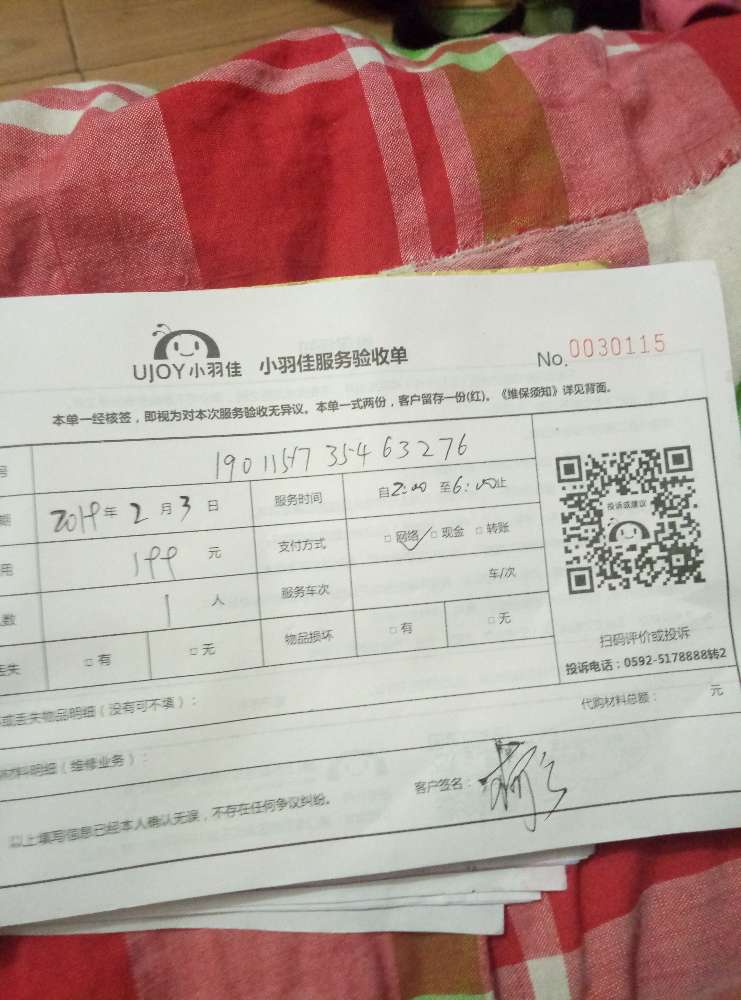 UJOY小羽佳 小羽佳服务验收单 No.0030115
本单一经核签，即视为对本次服务验收无异议。本单一式两份，客户留存一份(红)。《维保须知》详见背面。
号 1901151735463276
期 2019年2月3日 服务时间 自2:00至6:00止
用 199元 支付方式 □网络 □现金 □转账
数 1人 服务车次 车/次
丢失 □有 □无 物品损坏 □有 □无
投诉或建议
扫码评价或投诉
投诉电话：0592-5178888转2
或丢失物品明细（没有可不填）： 代购材料总额： 元
材料明细（维修业务）：
客户签名：
以上填写信息已经本人确认无误，不存在任何争议纠纷。